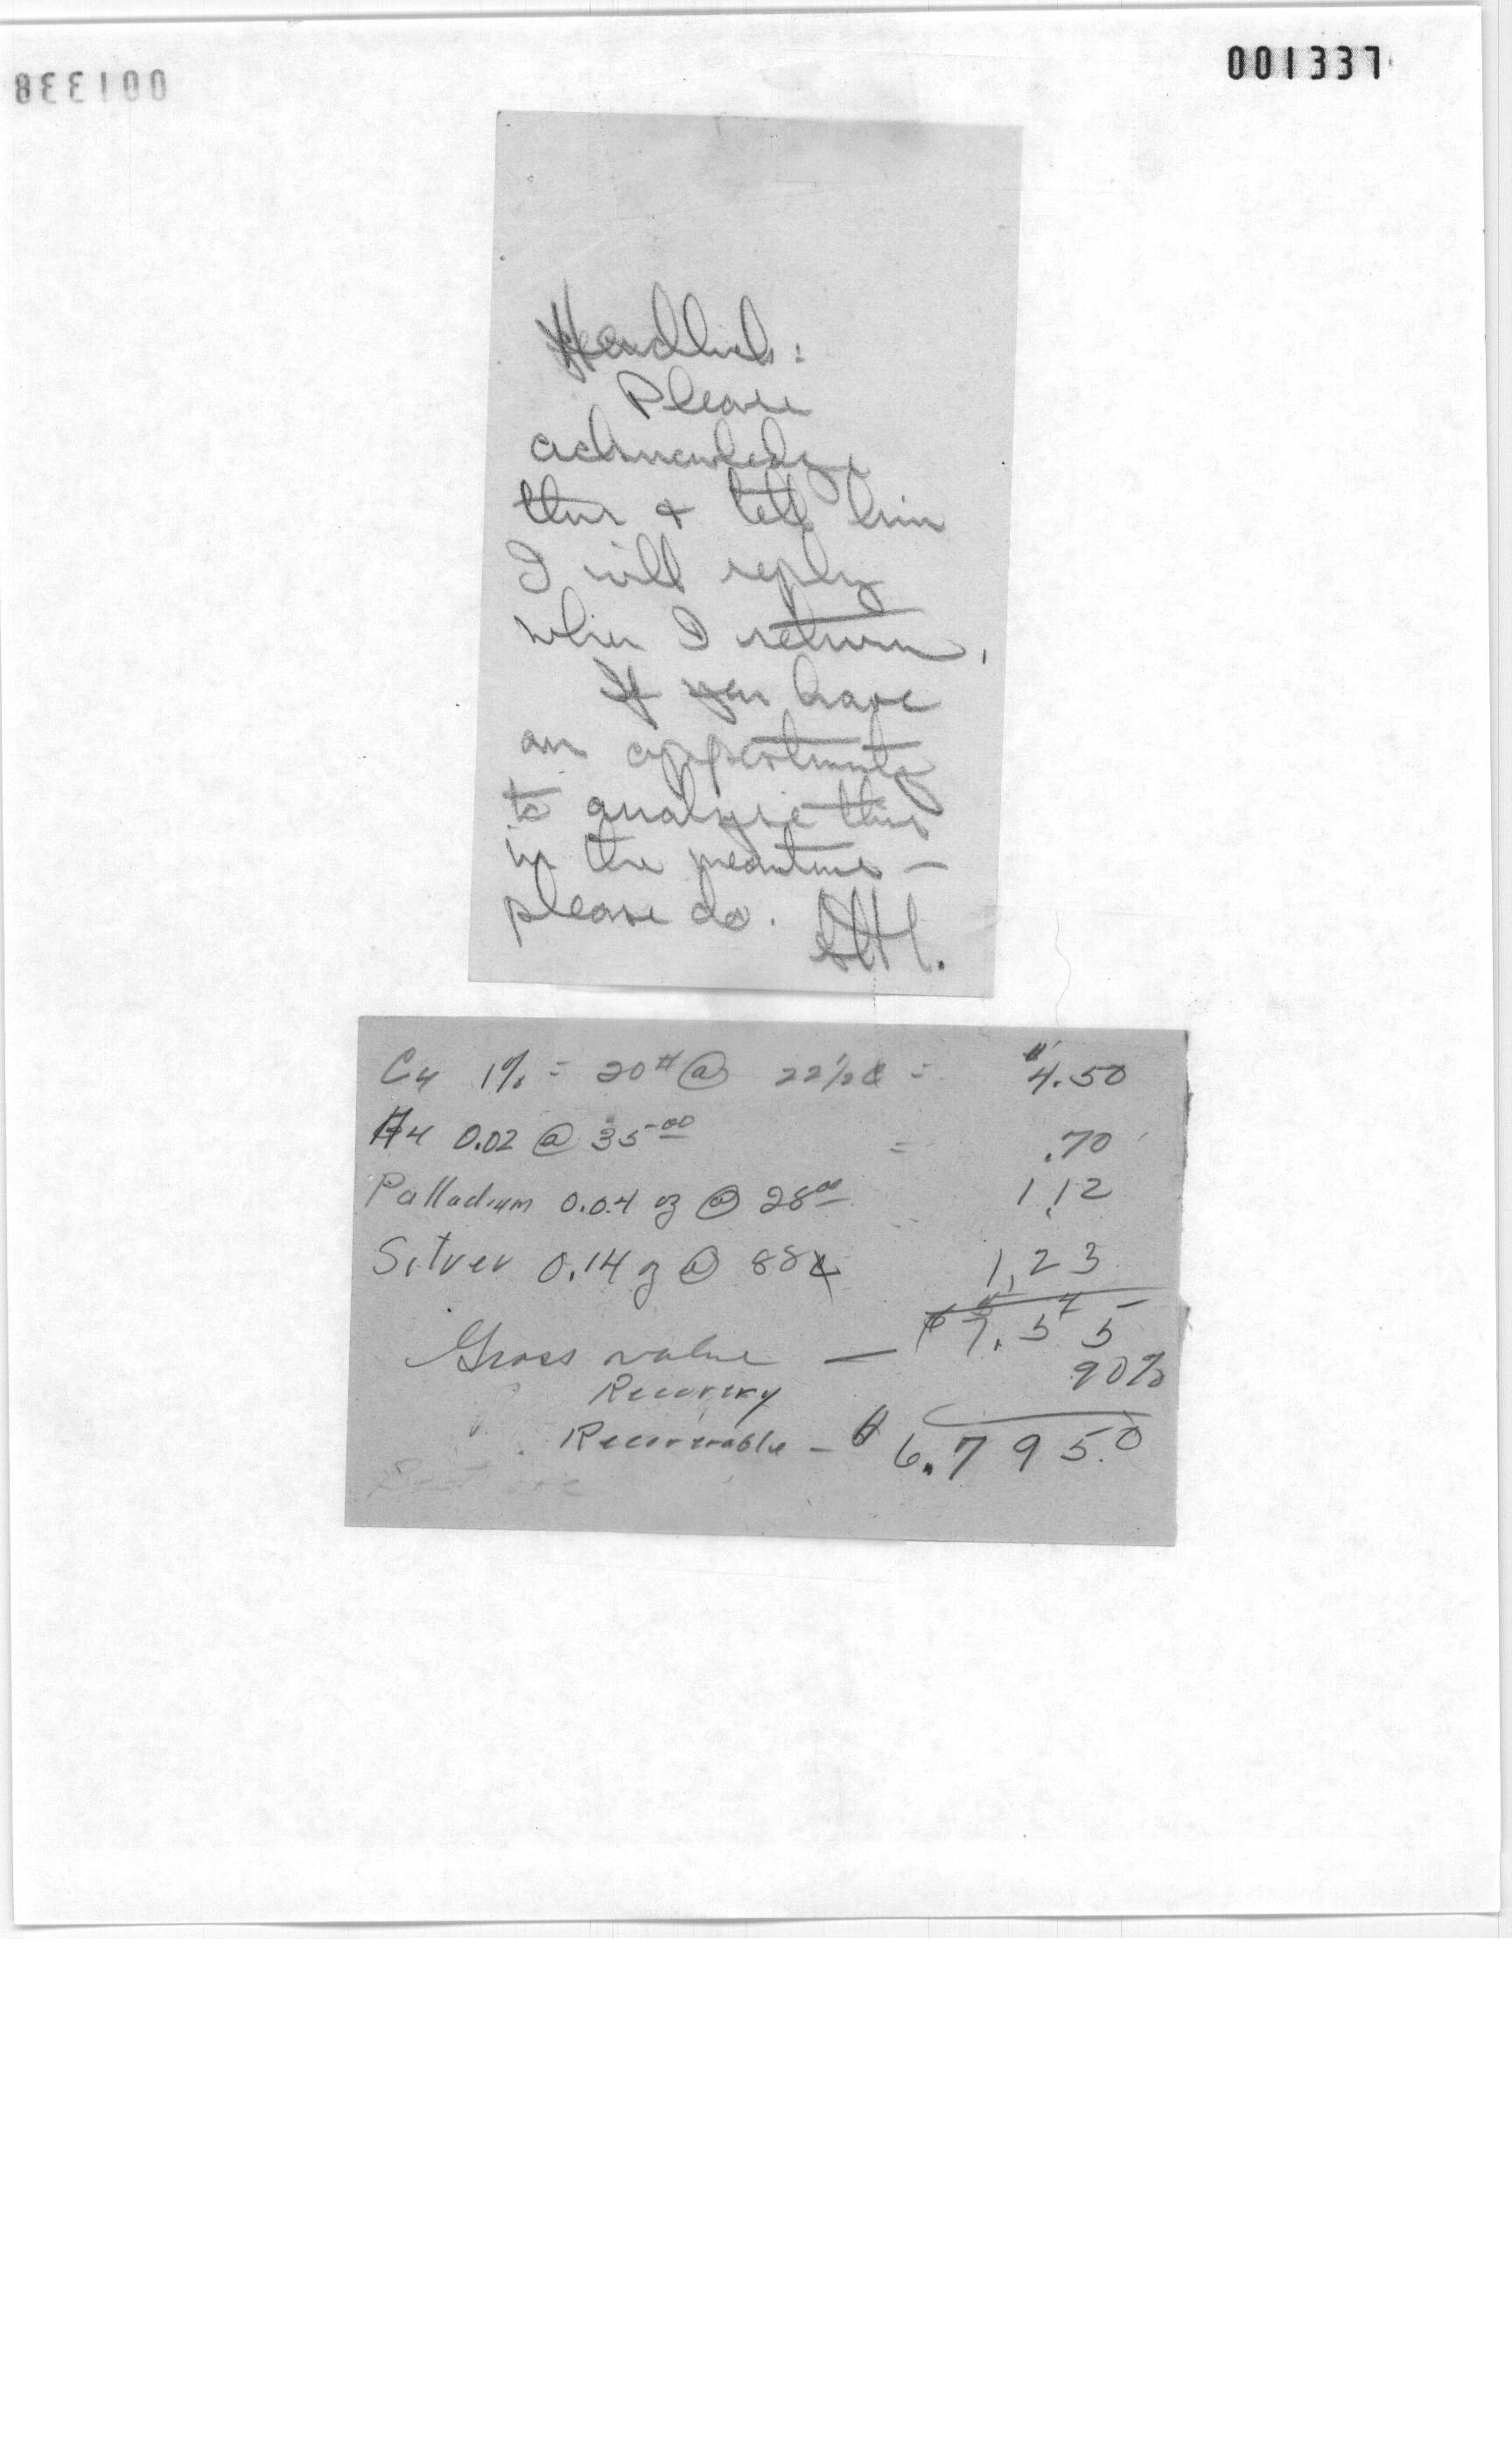 001337
001338
Headlick:
Please
acknowledge
this & tell him
I will reply
when I return.
If you have
an opportunity
to analyze this
in the meantime —
please do.
Cu 1% = 20# @ 22½¢ = $4.50
Au 0.02 @ 35.00 = .70
Palladium 0.04 oz @ 28.00 1.12
Silver 0.14 oz @ 88¢ 1.23
Gross value — $7.55
Recovery 90%
Recoverable — $6.7950